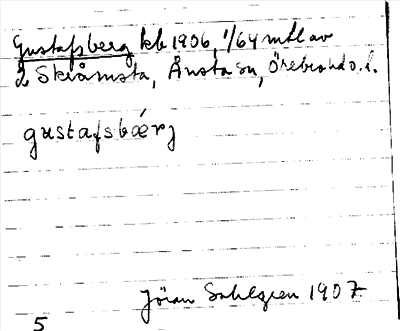 Gustafsberg kb 1906, 1/64 mtl av
2 Skråmsta, Ånsta sn, Örebro hd o. l.
gustafsbǽrj
Jöran Sahlgren 1907
5